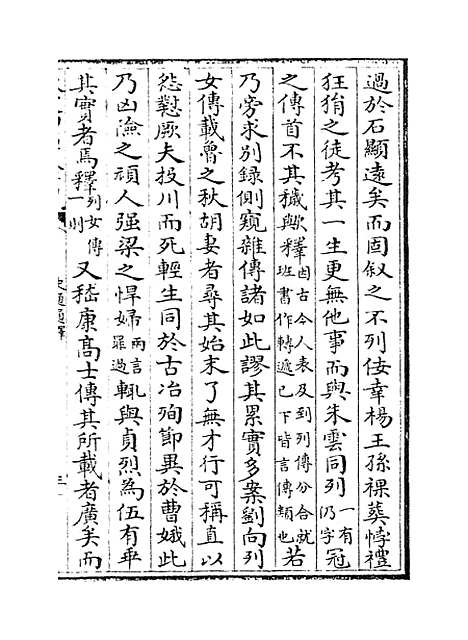 過於石顯遠矣而固叙之不列佞幸楊王孫祼葬悖禮
狂狷之徒考其一生更無他事而與朱雲同列一有仍字冠
之傳首不其穢歟釋因古今人表及到列傳分合就班書作轉遞已下皆言傳類也若
乃旁求别録側窺雜傳諸如此謬其累實多案劉向列
女傳載魯之秋胡妻者尋其始末了無才行可稱直以
怨懟厥夫投川而死輕生同於古冶殉節異於曹娥此
乃凶險之頑人强梁之悍婦兩言罪過輒與貞烈為伍有乖
其實者焉釋列女傳一則又嵇康髙士傳其所載者廣矣而